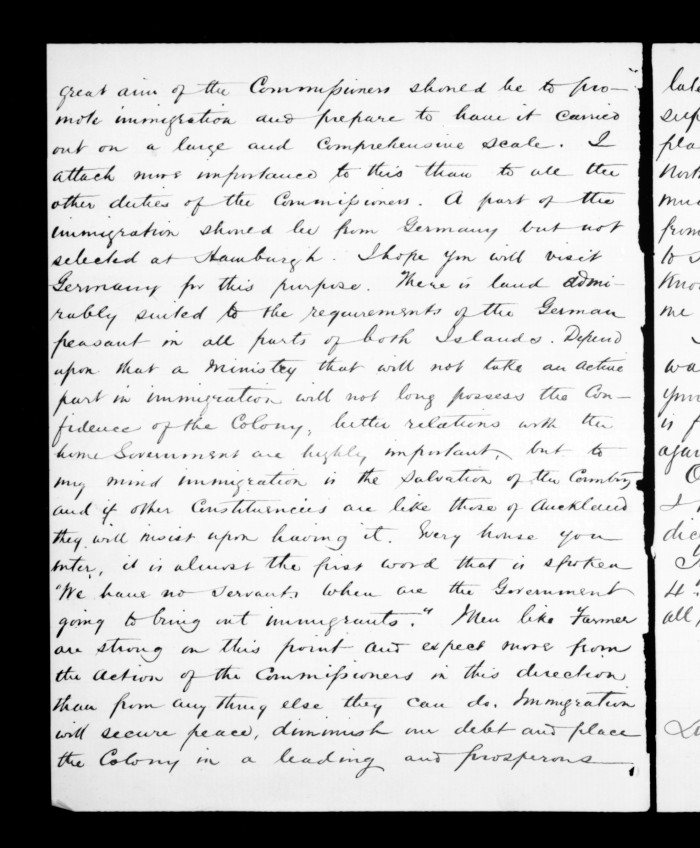 great aim of the Commissioners should be to pro-
mote immigration and prepare to have it carried
out on a large and Comprehensive scale. I
attach more importance to this than to all the
other duties of the Commissioners. A part of the
immigration should be from Germany but not
selected at Hamburgh. I hope you will visit
Germany for this purpose. There is land admi-
rably suited to the requirements of the German
peasant in all parts of both Islands. Depend
upon that a Ministry that will not take an active
part in immigration will not long possess the Con-
fidence of the Colony, better relations with the
home Government are highly important, but to
my mind immigration is the Salvation of the Country
and if other Constituencies are like those of Auckland
they will insist upon having it. Every house you
enter, it is almost the first word that is spoken
"We have no servants when are the Government
going to bring out immigrants." Men like Farmer
are strong on this point and expect more from
the action of the Commissioners in this direction
than from any thing else they can do. Immigration
will secure peace, diminish our debt and place
the Colony in a leading and prosperous
late
sup
pla
Nort
muc
from
to
Kno
me
wa
your
is f
again
O
I
dec
4
all,